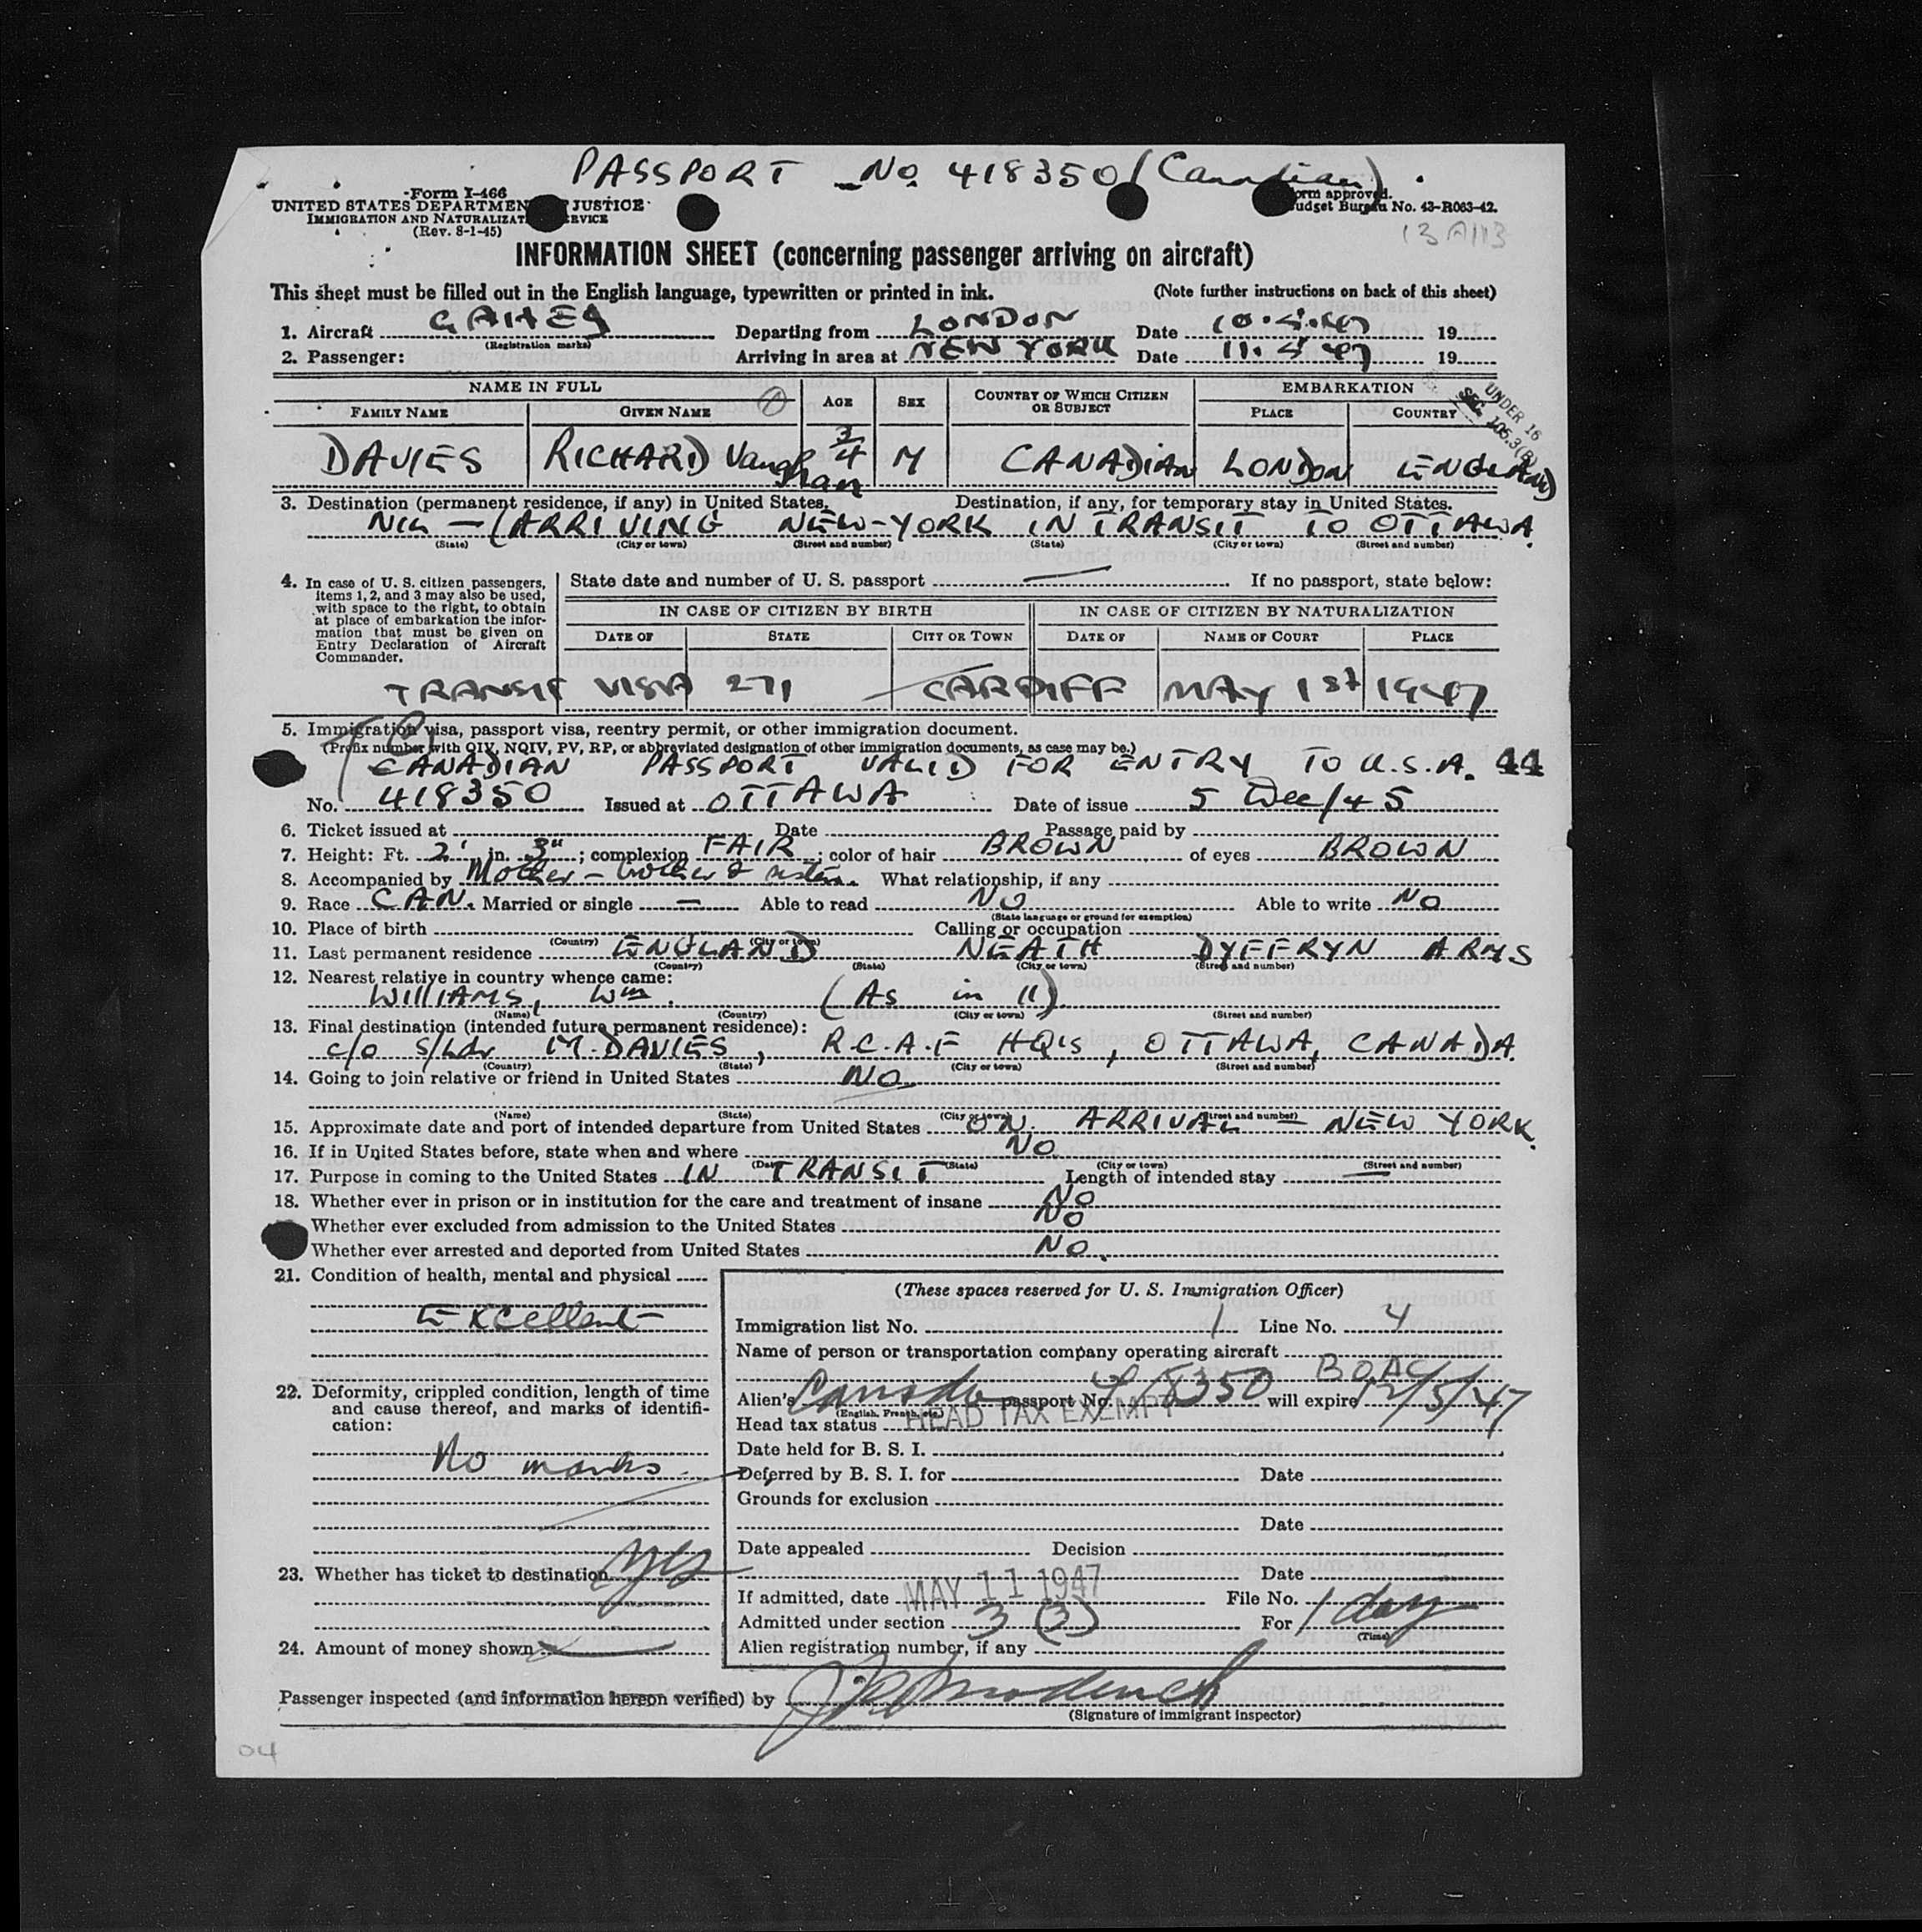 PASSPORT No 418350 (Canadian)
Form I-466
UNITED STATES DEPARTMENT JUSTICE
IMMIGRATION AND NATURALIZAT SERVICE
(Rev. 8-1-45)
Form approved.
Budget Bureau No. 43-R063-42.
INFORMATION SHEET (concerning passenger arriving on aircraft)
This sheet must be filled out in the English language, typewritten or printed in ink. (Note further instructions on back of this sheet)
1. Aircraft GAHEJ Departing from LONDON Date 10.5.47 19
(Registration marks)
2. Passenger: Arriving in area at NEW YORK Date 11.5.47 19
NAME IN FULL AGE SEX COUNTRY OF WHICH CITIZEN OR SUBJECT EMBARKATION
FAMILY NAME GIVEN NAME 1 PLACE COUNTRY
UNDER 16
SEC. 105.3(B)
DAVIES RICHARD Vaughan 3/4 M CANADIAN LONDON ENGLAND
3. Destination (permanent residence, if any) in United States. Destination, if any, for temporary stay in United States.
NIL — (ARRIVING NEW-YORK IN TRANSIT TO OTTAWA
(State) (City or town) (Street and number) (State) (City or town) (Street and number)
4. In case of U. S. citizen passengers, items 1, 2, and 3 may also be used, with space to the right, to obtain at place of embarkation the information that must be given on Entry Declaration of Aircraft Commander.
State date and number of U. S. passport — If no passport, state below:
IN CASE OF CITIZEN BY BIRTH IN CASE OF CITIZEN BY NATURALIZATION
DATE OF STATE CITY OR TOWN DATE OF NAME OF COURT PLACE
TRANSIT VISA 271 — CARDIFF MAY 1st 1947
5. Immigration visa, passport visa, reentry permit, or other immigration document.
(Prefix number with QIV, NQIV, PV, RP, or abbreviated designation of other immigration documents, as case may be.)
CANADIAN PASSPORT VALID FOR ENTRY TO U.S.A. 44
No. 418350 Issued at OTTAWA Date of issue 5 Dec/45
6. Ticket issued at Date Passage paid by
7. Height: Ft. 2' in. 3" ; complexion FAIR ; color of hair BROWN of eyes BROWN
8. Accompanied by Mother – brother & sister. What relationship, if any
9. Race CAN. Married or single — Able to read NO Able to write NO
(State language or ground for exemption)
10. Place of birth Calling or occupation
(Country) (City or town)
11. Last permanent residence ENGLAND NEATH DYFFRYN ARMS
(Country) (State) (City or town) (Street and number)
12. Nearest relative in country whence came:
WILLIAMS, Wm. (As in 11)
(Name) (Country) (City or town) (Street and number)
13. Final destination (intended future permanent residence):
c/o S/Ldr M. DAVIES, R.C.A.F HQ's, OTTAWA, CANADA
(Country) (State) (City or town) (Street and number)
14. Going to join relative or friend in United States NO
(Name) (State) (City or town) (Street and number)
15. Approximate date and port of intended departure from United States ON ARRIVAL – NEW YORK.
16. If in United States before, state when and where NO
(Date) (State) (City or town) (Street and number)
17. Purpose in coming to the United States IN TRANSIT Length of intended stay —
18. Whether ever in prison or in institution for the care and treatment of insane NO
Whether ever excluded from admission to the United States NO
Whether ever arrested and deported from United States NO.
21. Condition of health, mental and physical
Excellent
22. Deformity, crippled condition, length of time and cause thereof, and marks of identification:
No marks
23. Whether has ticket to destination yes
24. Amount of money shown
(These spaces reserved for U. S. Immigration Officer)
Immigration list No. 1 Line No. 4
Name of person or transportation company operating aircraft
BOAC
Alien's Canada passport No. 418350 will expire 12/5/47
(English, French, etc.)
Head tax status HEAD TAX EXEMPT
Date held for B. S. I.
Deferred by B. S. I. for Date
Grounds for exclusion
Date
Date appealed Decision
Date
If admitted, date MAY 11 1947 File No.
Admitted under section 3 (3) For 1 day
(Time)
Alien registration number, if any
Passenger inspected (and information hereon verified) by
(Signature of immigrant inspector)
04